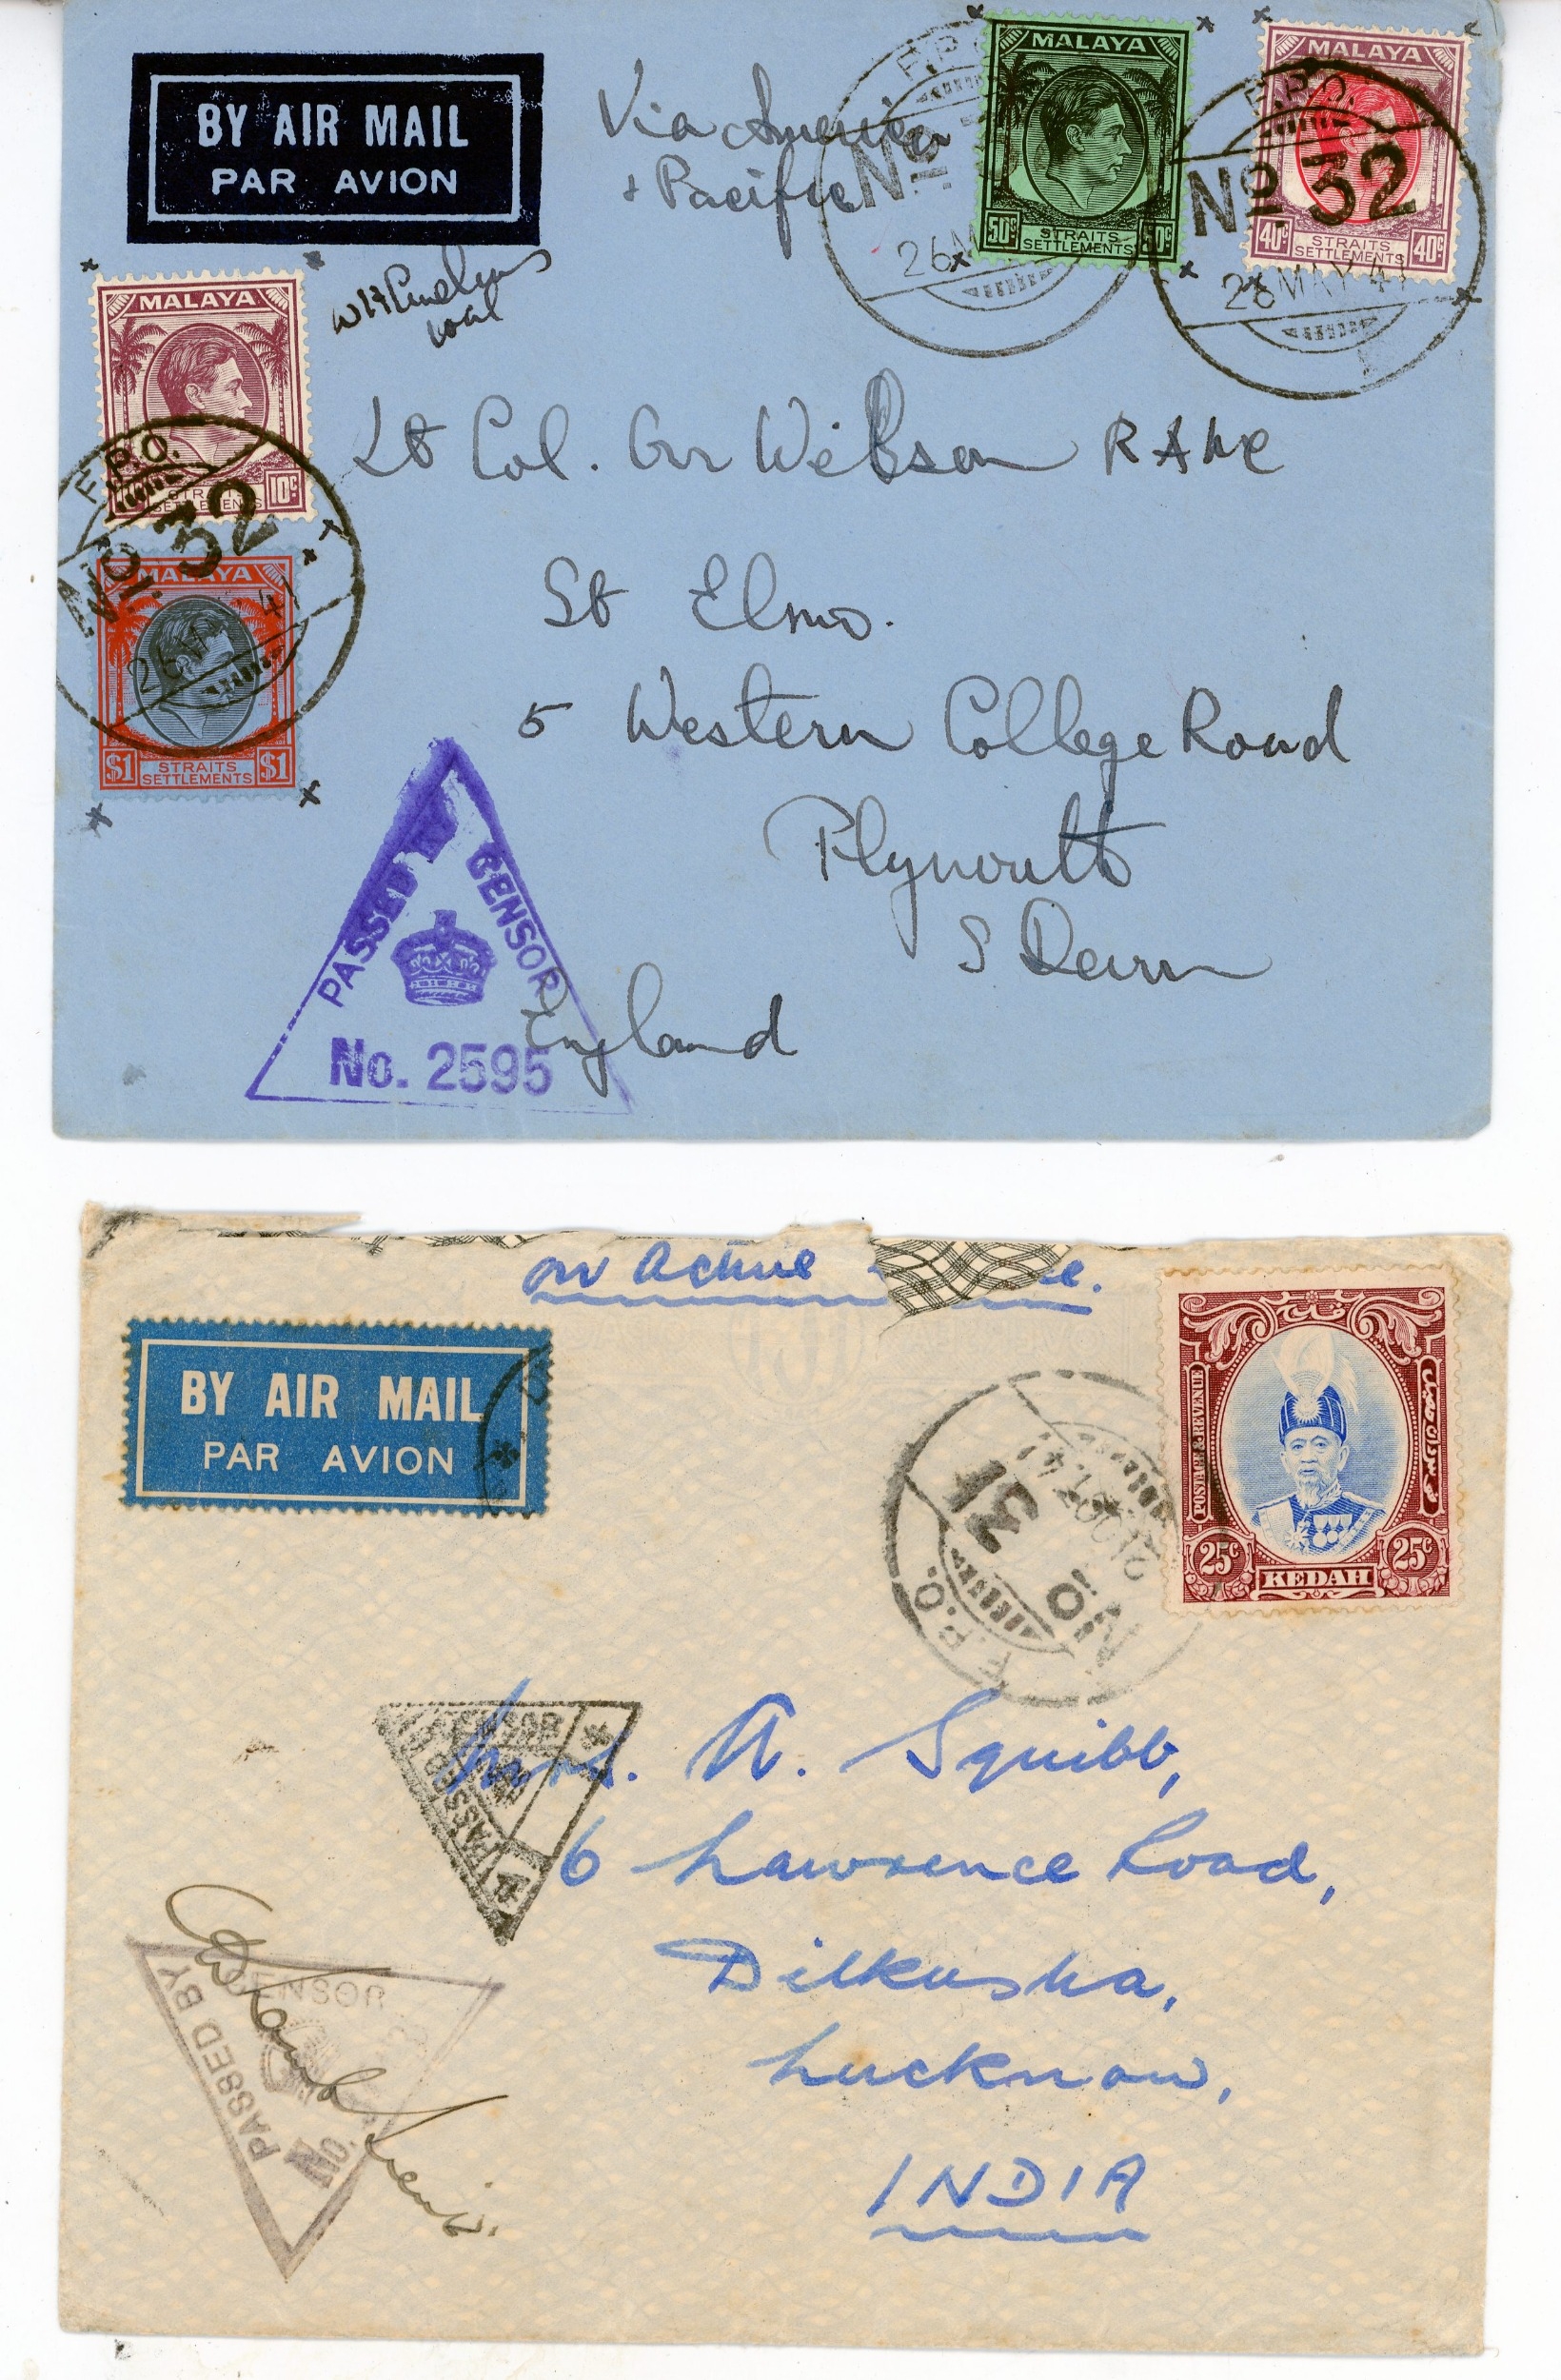 BY AIR MAIL
PAR AVION
Via America
+ Pacific
F.P.O.
No.
26
MALAYA
50c STRAITS SETTLEMENTS 50c
MALAYA
40c STRAITS SETTLEMENTS 40c
F.P.O.
No. 32
26 MAY 41
MALAYA
STRAITS SETTLEMENTS 10c
F.P.O.
No. 32
26 41
MALAYA
$1 STRAITS SETTLEMENTS $1
Lt Col. Wilson RAMC
St Elmo.
5 Western College Road
Plymouth
S Devon
England
PASSED CENSOR
No. 2595
on Active e.
BY AIR MAIL
PAR AVION
F.P.O.
No 31
POSTAGE & REVENUE
25c KEDAH 25c
PASSED CENSOR
Mrs. A. Squibb,
6 Lawrence Road,
Dilkusha,
Lucknow,
INDIA
PASSED BY CENSOR
No.